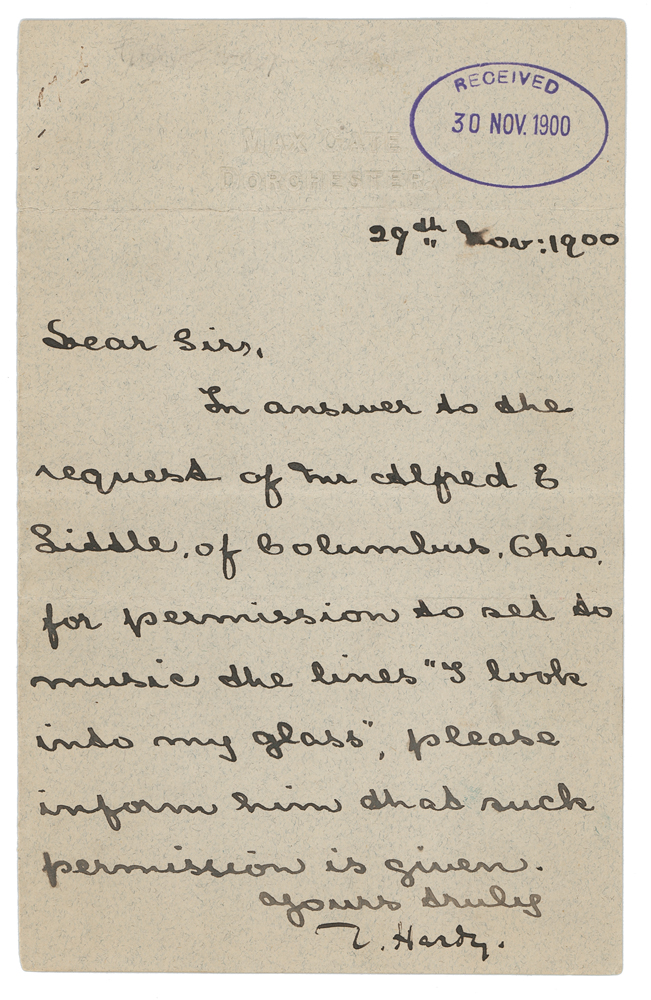 RECEIVED
30 NOV. 1900
MAX GATE
DORCHESTER
29th Nov: 1900
Dear Sirs,
In answer to the
request of Mr Alfred E
Liddle, of Columbus, Ohio,
for permission to set to
music the lines "I look
into my glass", please
inform him that such
permission is given.
Yours truly
T. Hardy.